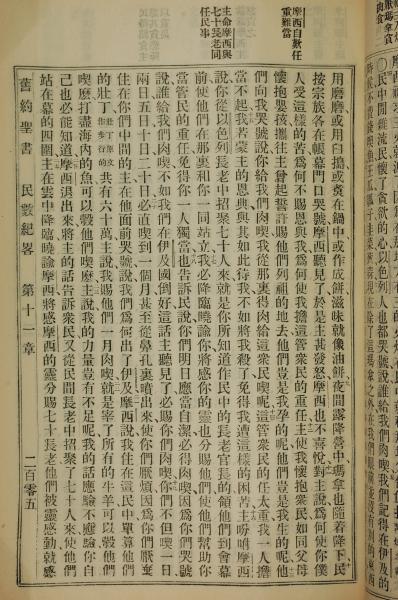 民中間雜流民懷了貪慾的心以色列人也都哭號說誰給我們肉喫我們記得在伊及的
摩西自歎任
重難當
主命摩西與
七十長老同
任民事
用磨磨或用臼搗或煑在鍋中或作成餅滋味就像油餅夜間露降營中瑪拿也隨着降下民
按宗族各在帳幕門口哭號摩西聽見了於是主甚發怒摩西也不喜悅對主說爲何使你僕
人受這樣的苦爲何不賜恩與我爲何使我擔這管衆民的重任主使我懷抱衆民如同父母
懷抱嬰孩攜往主曾起誓許賜他們列祖的地去他們豈是我孕的呢他們豈是我生的呢他
們向我哭號說你給我們肉喫我從那裏得肉給這衆民喫呢這管衆民的任太重我一人擔
當不起我若蒙主的恩典與其如此待我不如將我殺了免得我遭這樣的困苦主吩咐摩西
說你從以色列長老中招聚七十人來就是你所知道作民中的長老官長的領他們到會幕
使他們在那裏和你一同站立我必降臨曉諭你將感你的靈也分賜他們使他們幫助你
當管民的重任免得你一人獨當也告訴民說你們明日應當自潔必得肉喫因爲你們哭號
說誰給我們肉喫不如我們在伊及國倒好這話主聽見了必賜你們肉喫你們不但喫一日
兩日五日十日二十日必直喫到一個月甚至從鼻孔裏噴出來使你們厭煩因爲你們厭棄
住在你們中間的主在他面前哭號說我們爲何出了伊及摩西說我住在這民中單算他們
的壯丁壯丁原作步行的共有六十萬主說我賜他們一月肉喫就是宰了所有的牛羊可以彀他們
喫麽打盡海內的魚可以彀他們喫麽主說我的力量豈有不足呢我的話應驗不應驗你自
己也必能知道摩西退出來將主的話告訴衆民又從民間長老中招聚了七十人來使他們
站在幕的四圍主在雲中降臨曉諭摩西將感了摩西的靈分賜七十長老他們被靈感動就感
舊約聖書 民數紀畧 第十一章 二百零五